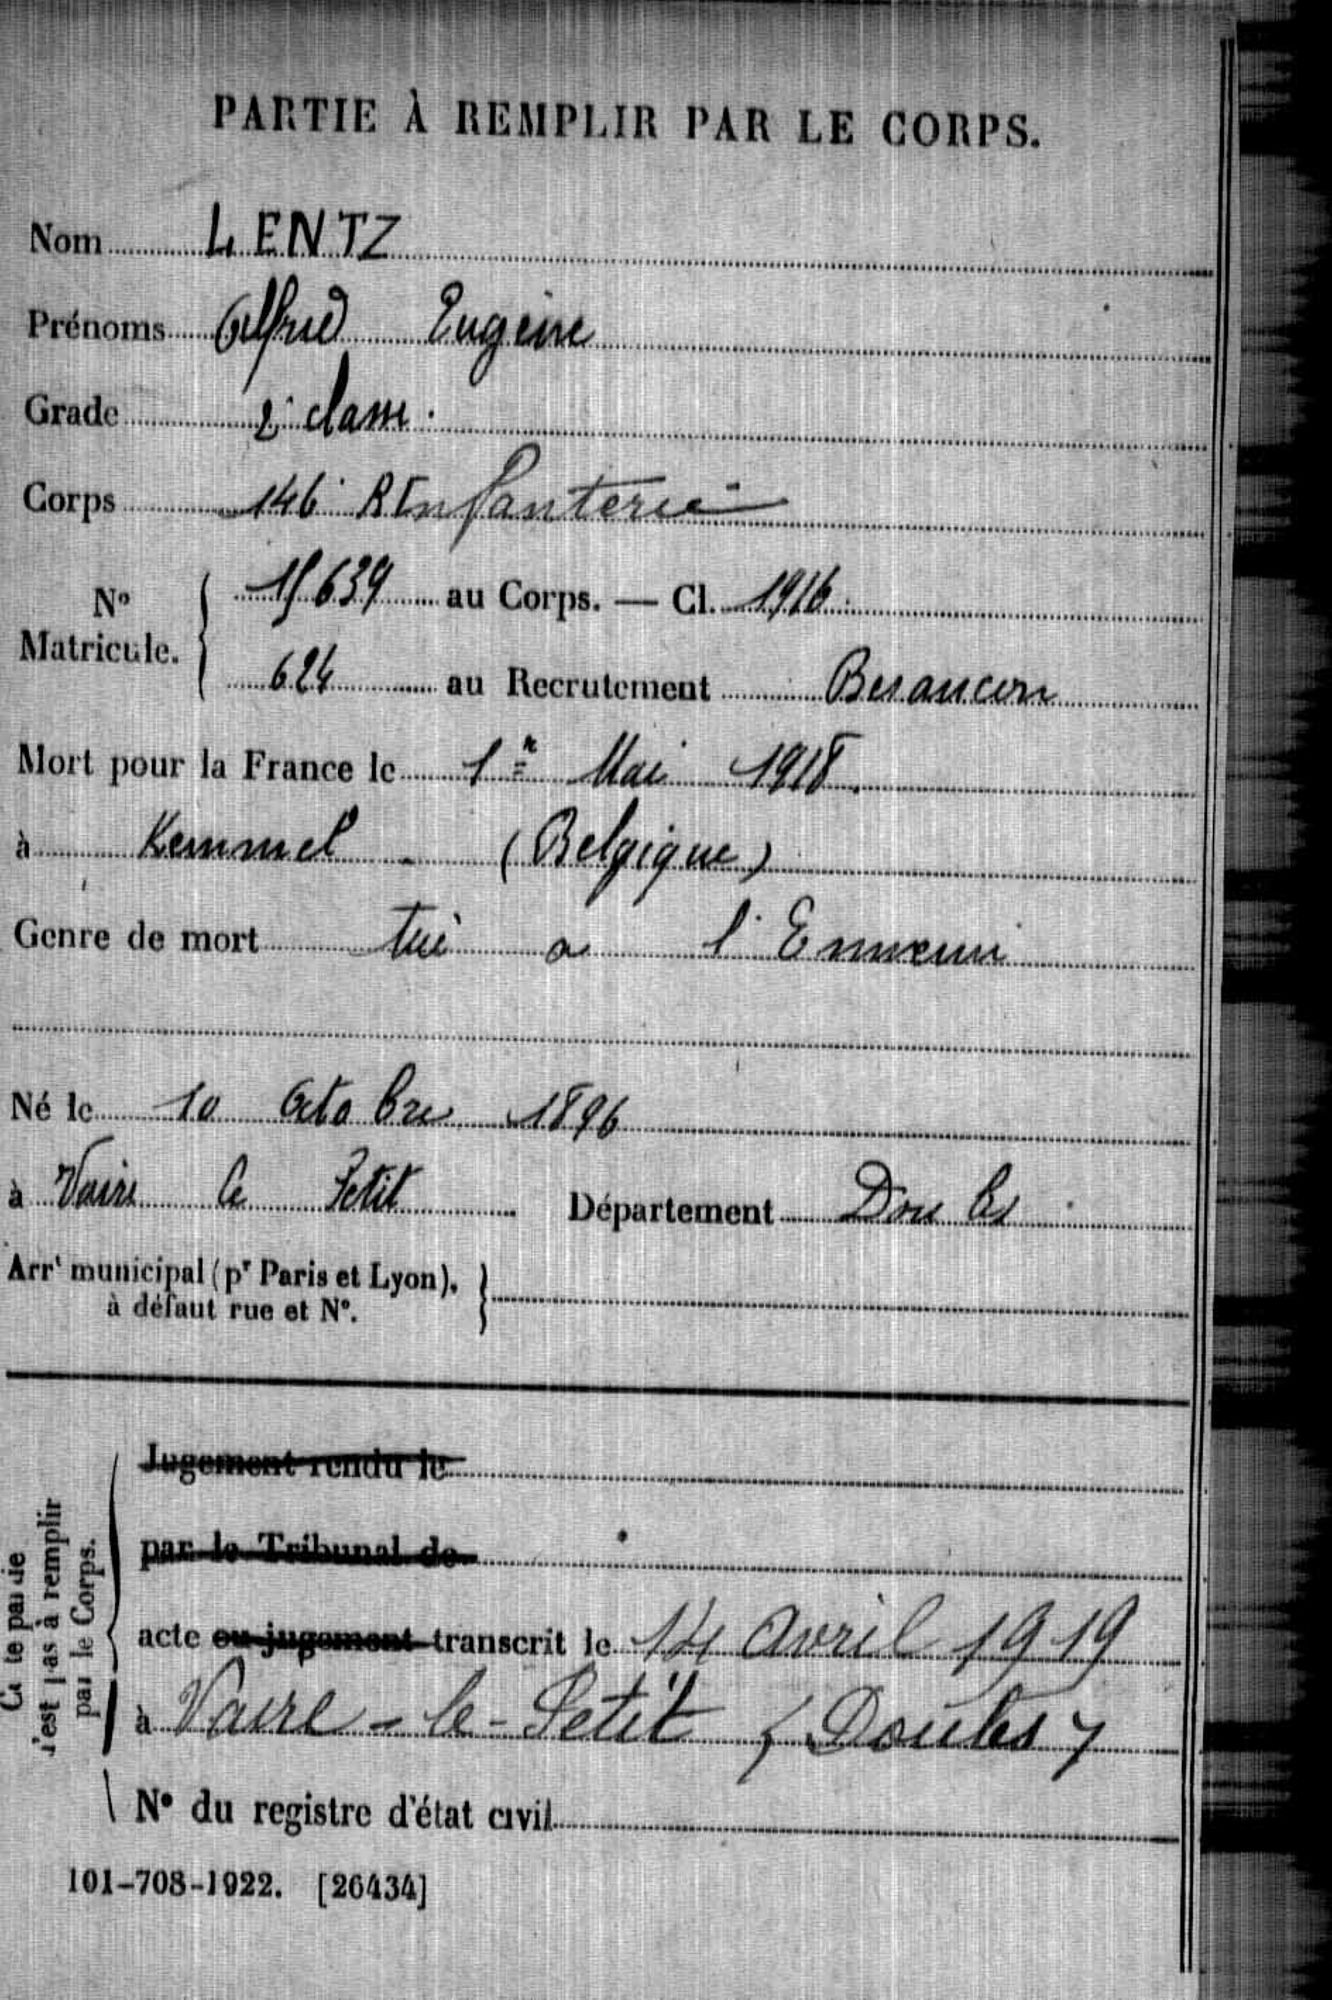 PARTIE À REMPLIR PAR LE CORPS.
Nom LENTZ
Prénoms Alfred Eugène
Grade 2e classe.
Corps 146e R Infanterie
N° Matricule. 15639 au Corps. — Cl. 1916.
624 au Recrutement Besancon
Mort pour la France le 1er Mai 1918.
à Kemmel (Belgique)
Genre de mort tué a l'Ennemi
Né le 10 Octobre 1896
à Vaire le Petit Département Doubs
Arrt municipal (pr Paris et Lyon),
à défaut rue et N°.
Jugement rendu le
par le Tribunal de
acte ou jugement transcrit le 14 avril 1919
à Vaire-le-Petit (Doubs)
N° du registre d'état civil
Cette partie
n'est pas à remplir
par le Corps.
101-708-1922. [26434]